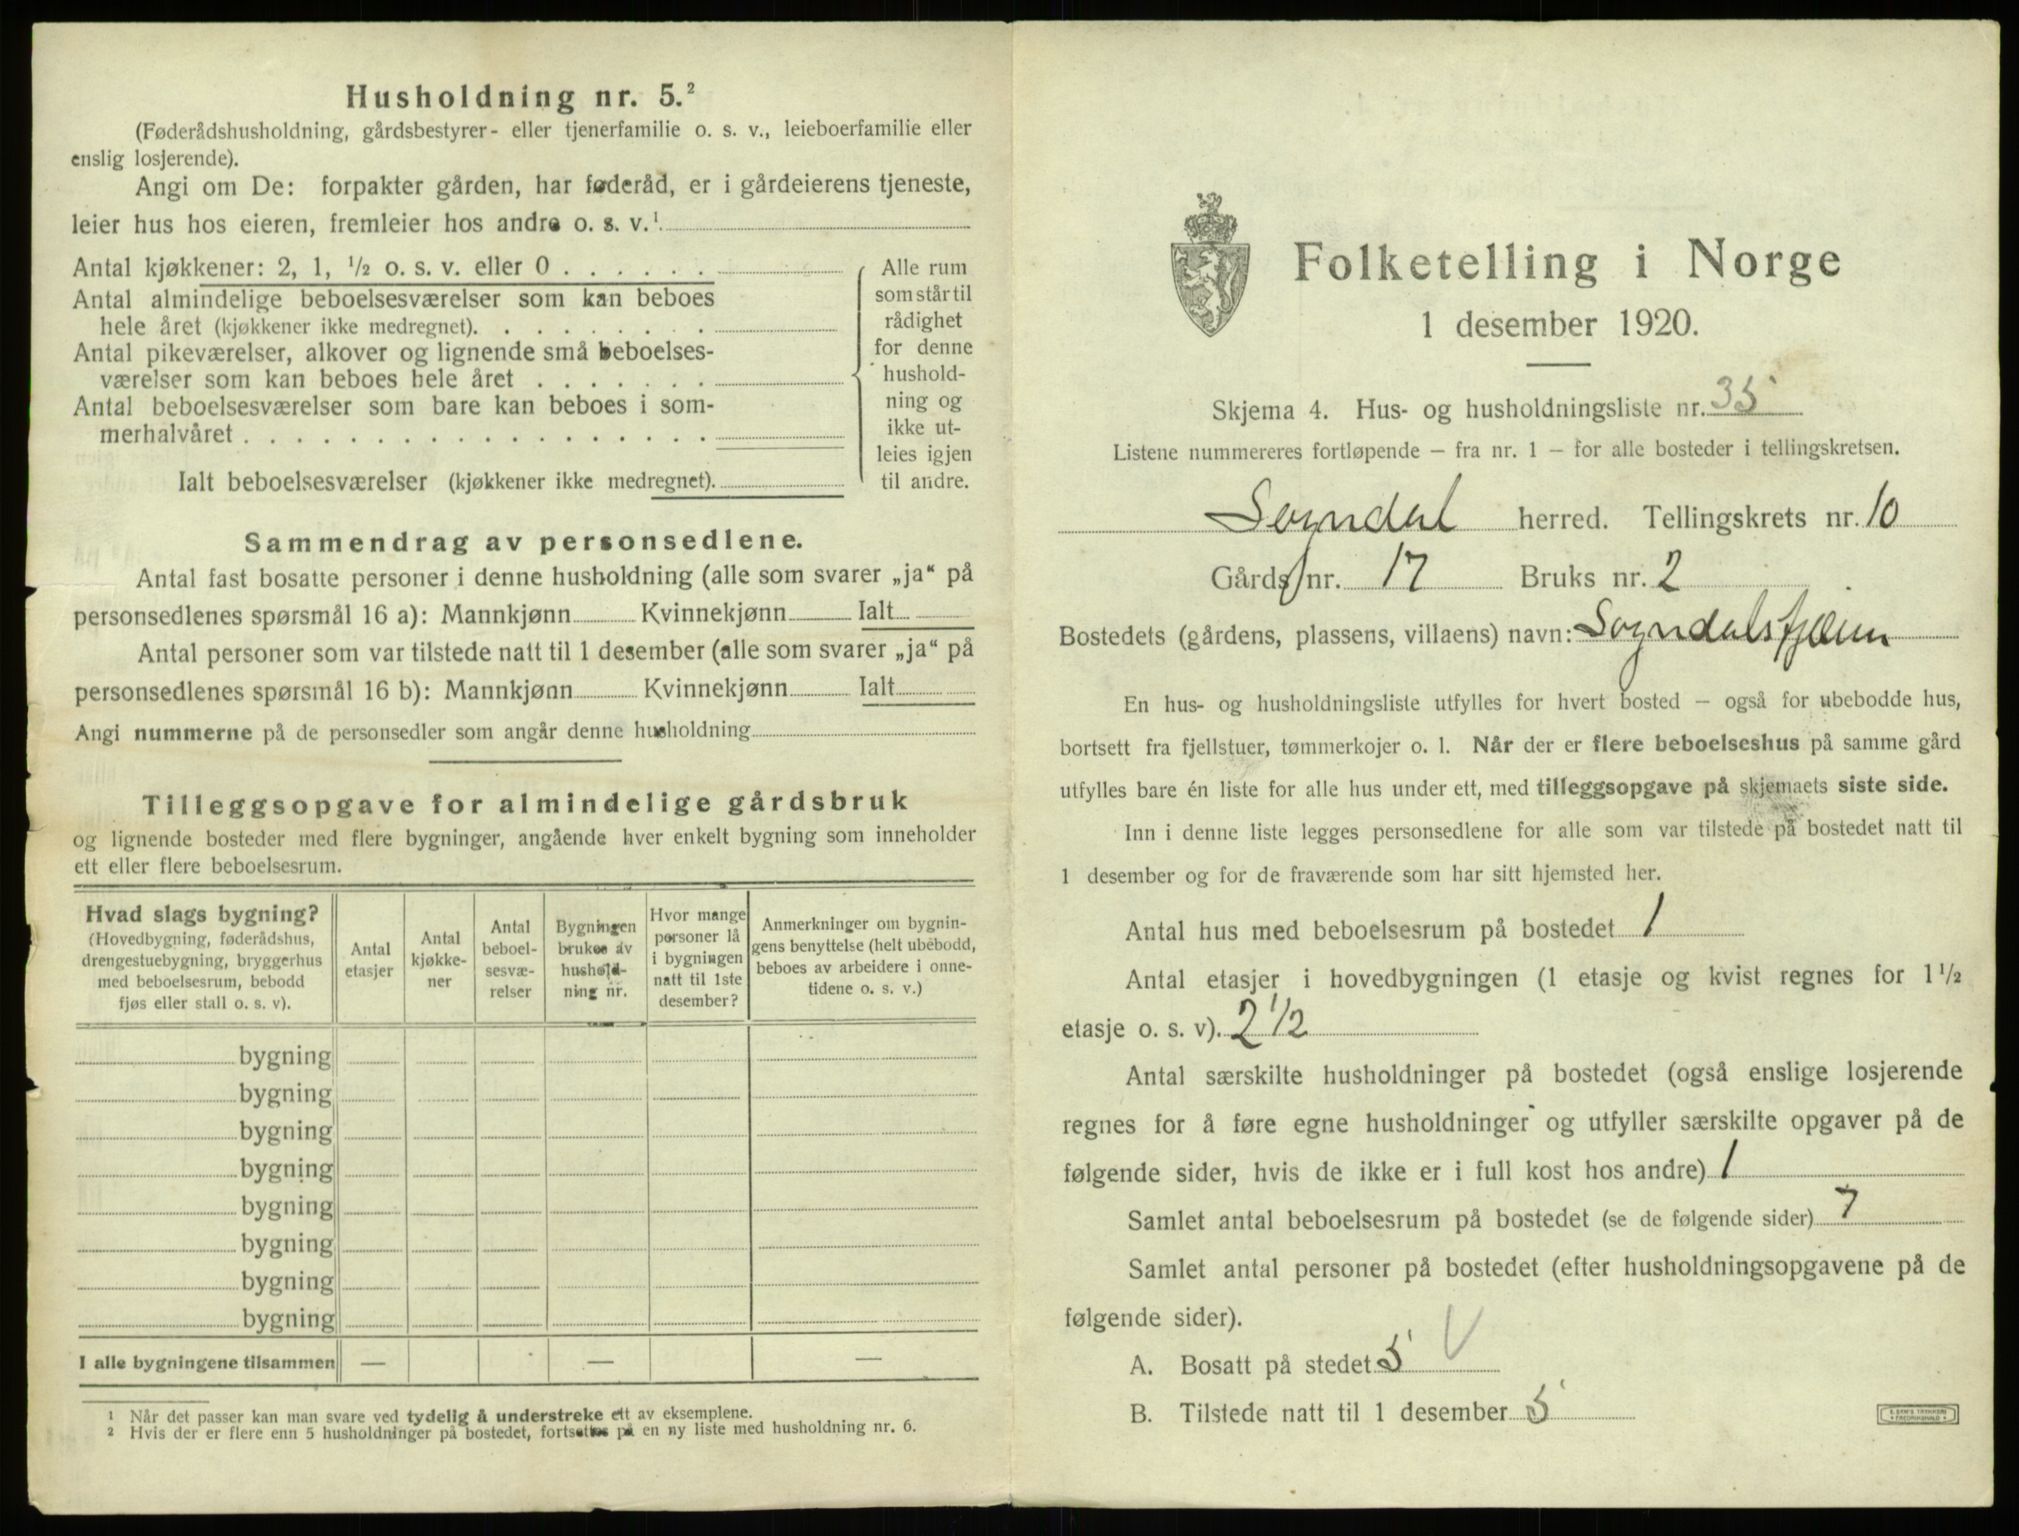 Husholdning nr. 5.²
(Føderådshusholdning, gårdsbestyrer- eller tjenerfamilie o. s. v., leieboerfamilie eller
enslig losjerende).
Angi om De: forpakter gården, har føderåd, er i gårdeierens tjeneste,
leier hus hos eieren, fremleier hos andre o. s. v.¹
Antal kjøkkener: 2, 1, ½ o. s. v. eller 0
Antal almindelige beboelsesværelser som kan beboes
hele året (kjøkkener ikke medregnet).
Antal pikeværelser, alkover og lignende små beboelses-
værelser som kan beboes hele året
Antal beboelsesværelser som bare kan beboes i som-
merhalvåret
Ialt beboelsesværelser (kjøkkener ikke medregnet).
Alle rum
som står til
rådighet
for denne
hushold-
ning og
ikke ut-
leies igjen
til andre.
Sammendrag av personsedlene.
Antal fast bosatte personer i denne husholdning (alle som svarer „ja“ på
personsedlenes spørsmål 16 a): Mannkjønn Kvinnekjønn Ialt
Antal personer som var tilstede natt til 1 desember (alle som svarer „ja“ på
personsedlenes spørsmål 16 b): Mannkjønn Kvinnekjønn Ialt
Angi nummerne på de personsedler som angår denne husholdning
Tilleggsopgave for almindelige gårdsbruk
og lignende bosteder med flere bygninger, angående hver enkelt bygning som inneholder
ett eller flere beboelsesrum.
Hvad slags bygning?
(Hovedbygning, føderådshus,
drengestuebygning, bryggerhus
med beboelsesrum, bebodd
fjøs eller stall o. s. v).
Antal
etasjer
Antal
kjøkke-
ner
Antal
beboel-
sesvæ-
relser
Bygningen
brukes av
hushold-
ning nr.
Hvor mange
personer lå
i bygningen
natt til 1ste
desember?
Anmerkninger om bygnin-
gens benyttelse (helt ubebodd,
beboes av arbeidere i onne-
tidene o. s. v.)
bygning
bygning
bygning
bygning
bygning
bygning
bygning
bygning
I alle bygningene tilsammen — — —
¹ Når det passer kan man svare ved tydelig å understreke ett av eksemplene.
² Hvis der er flere enn 5 husholdninger på bostedet, fortsettes på en ny liste med husholdning nr. 6.
Folketelling i Norge
1 desember 1920.
Skjema 4. Hus- og husholdningsliste nr. 35
Listene nummereres fortløpende – fra nr. 1 – for alle bosteder i tellingskretsen.
Sogndal herred. Tellingskrets nr. 10
Gårds nr. 17 Bruks nr. 2
Bostedets (gårdens, plassens, villaens) navn: Sogndalsfjæren
En hus- og husholdningsliste utfylles for hvert bosted – også for ubebodde hus,
bortsett fra fjellstuer, tømmerkojer o. l. Når der er flere beboelseshus på samme gård
utfylles bare én liste for alle hus under ett, med tilleggsopgave på skjemaets siste side.
Inn i denne liste legges personsedlene for alle som var tilstede på bostedet natt til
1 desember og for de fraværende som har sitt hjemsted her.
Antal hus med beboelsesrum på bostedet 1
Antal etasjer i hovedbygningen (1 etasje og kvist regnes for 1½
etasje o. s. v). 2 1/2
Antal særskilte husholdninger på bostedet (også enslige losjerende
regnes for å føre egne husholdninger og utfyller særskilte opgaver på de
følgende sider, hvis de ikke er i full kost hos andre) 1
Samlet antal beboelsesrum på bostedet (se de følgende sider) 7
Samlet antal personer på bostedet (efter husholdningsopgavene på de
følgende sider).
A. Bosatt på stedet 5 V
B. Tilstede natt til 1 desember 5